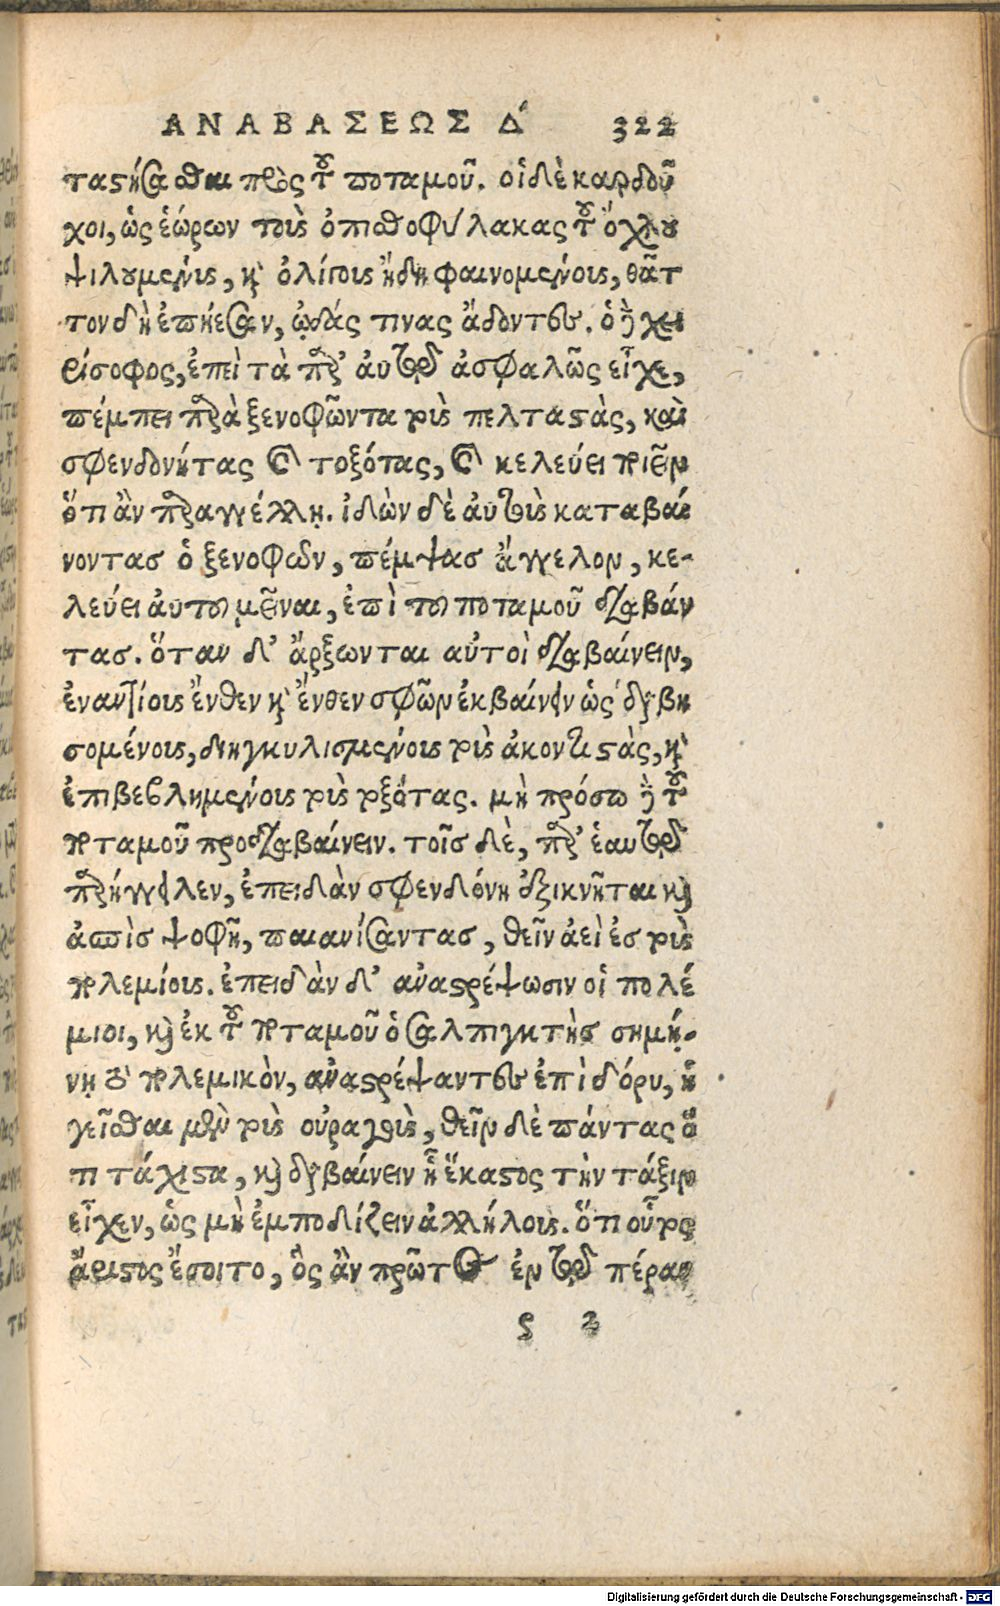 ΑΝΑΒΑΣΕΩΣ Δ΄ 322
ταστήσασθαι πρὸς τοῦ ποταμοῦ. οἱ δὲ καρδοῦ
χοι, ὡς ἑώρων τοὺς ὀπισθοφύλακας τοῦ ὄχλου
ψιλουμένους, καὶ ὀλίγους ἤδη φαινομένους, θᾶτ
τον δὴ ἐπῄεσαν, ᾠδάς τινας ᾄδοντες. ὁ δὲ χει
ρίσοφος, ἐπεὶ τὰ παρ' αὐτῷ ἀσφαλῶς εἶχε,
πέμπει παρὰ ξενοφῶντα τοὺς πελταστὰς, καὶ
σφενδονήτας καὶ τοξότας, καὶ κελεύει ποιεῖν
ὅτι ἂν παραγγέλλῃ. ἰδὼν δὲ αὐτοὺς καταβαί
νοντασ ὁ ξενοφῶν, πέμψασ ἄγγελον, κε-
λεύει αὐτοῦ μεῖναι, ἐπὶ τοῦ ποταμοῦ διαβάν
τασ. ὅταν δ' ἄρξωνται αὐτοὶ διαβαίνειν,
ἐναντίους ἔνθεν καὶ ἔνθεν σφῶν ἐκβαίνειν ὡς διαβη
σομένους, διηγκυλισμένους τοὺς ἀκοντιστὰς, καὶ
ἐπιβεβλημένους τοὺς τοξότας. μὴ πρόσω δὲ τοῦ
ποταμοῦ προδιαβαίνειν. τοῖσ δὲ, παρ' ἑαυτῷ
παρήγγειλεν, ἐπειδὰν σφενδόνη ἐξικνῆται καὶ
ἀσπὶσ ψοφῇ, παιανίσαντασ, θεῖν ἀεὶ ἐσ τοὺς
πολεμίους. ἐπειδὰν δ' ἀναστρέψωσιν οἱ πολέ
μιοι, καὶ ἐκ τοῦ ποταμοῦ ὁ σαλπιγκτὴσ σημή-
νῃ τὸ πολεμικὸν, ἀναστρέψαντες ἐπὶ δόρυ, ἡ
γεῖσθαι μὲν τοὺς οὐραγοὺς, θεῖν δὲ πάντας ὅ
τι τάχιστα, καὶ διαβαίνειν ᾗ ἕκαστος τὴν τάξιν
εἶχεν, ὡς μὴ ἐμποδίζειν ἀλλήλους. ὅτι οὗτος
ἄριστος ἔσοιτο, ὃς ἂν πρῶτος ἐν τῷ πέραν
ς 2